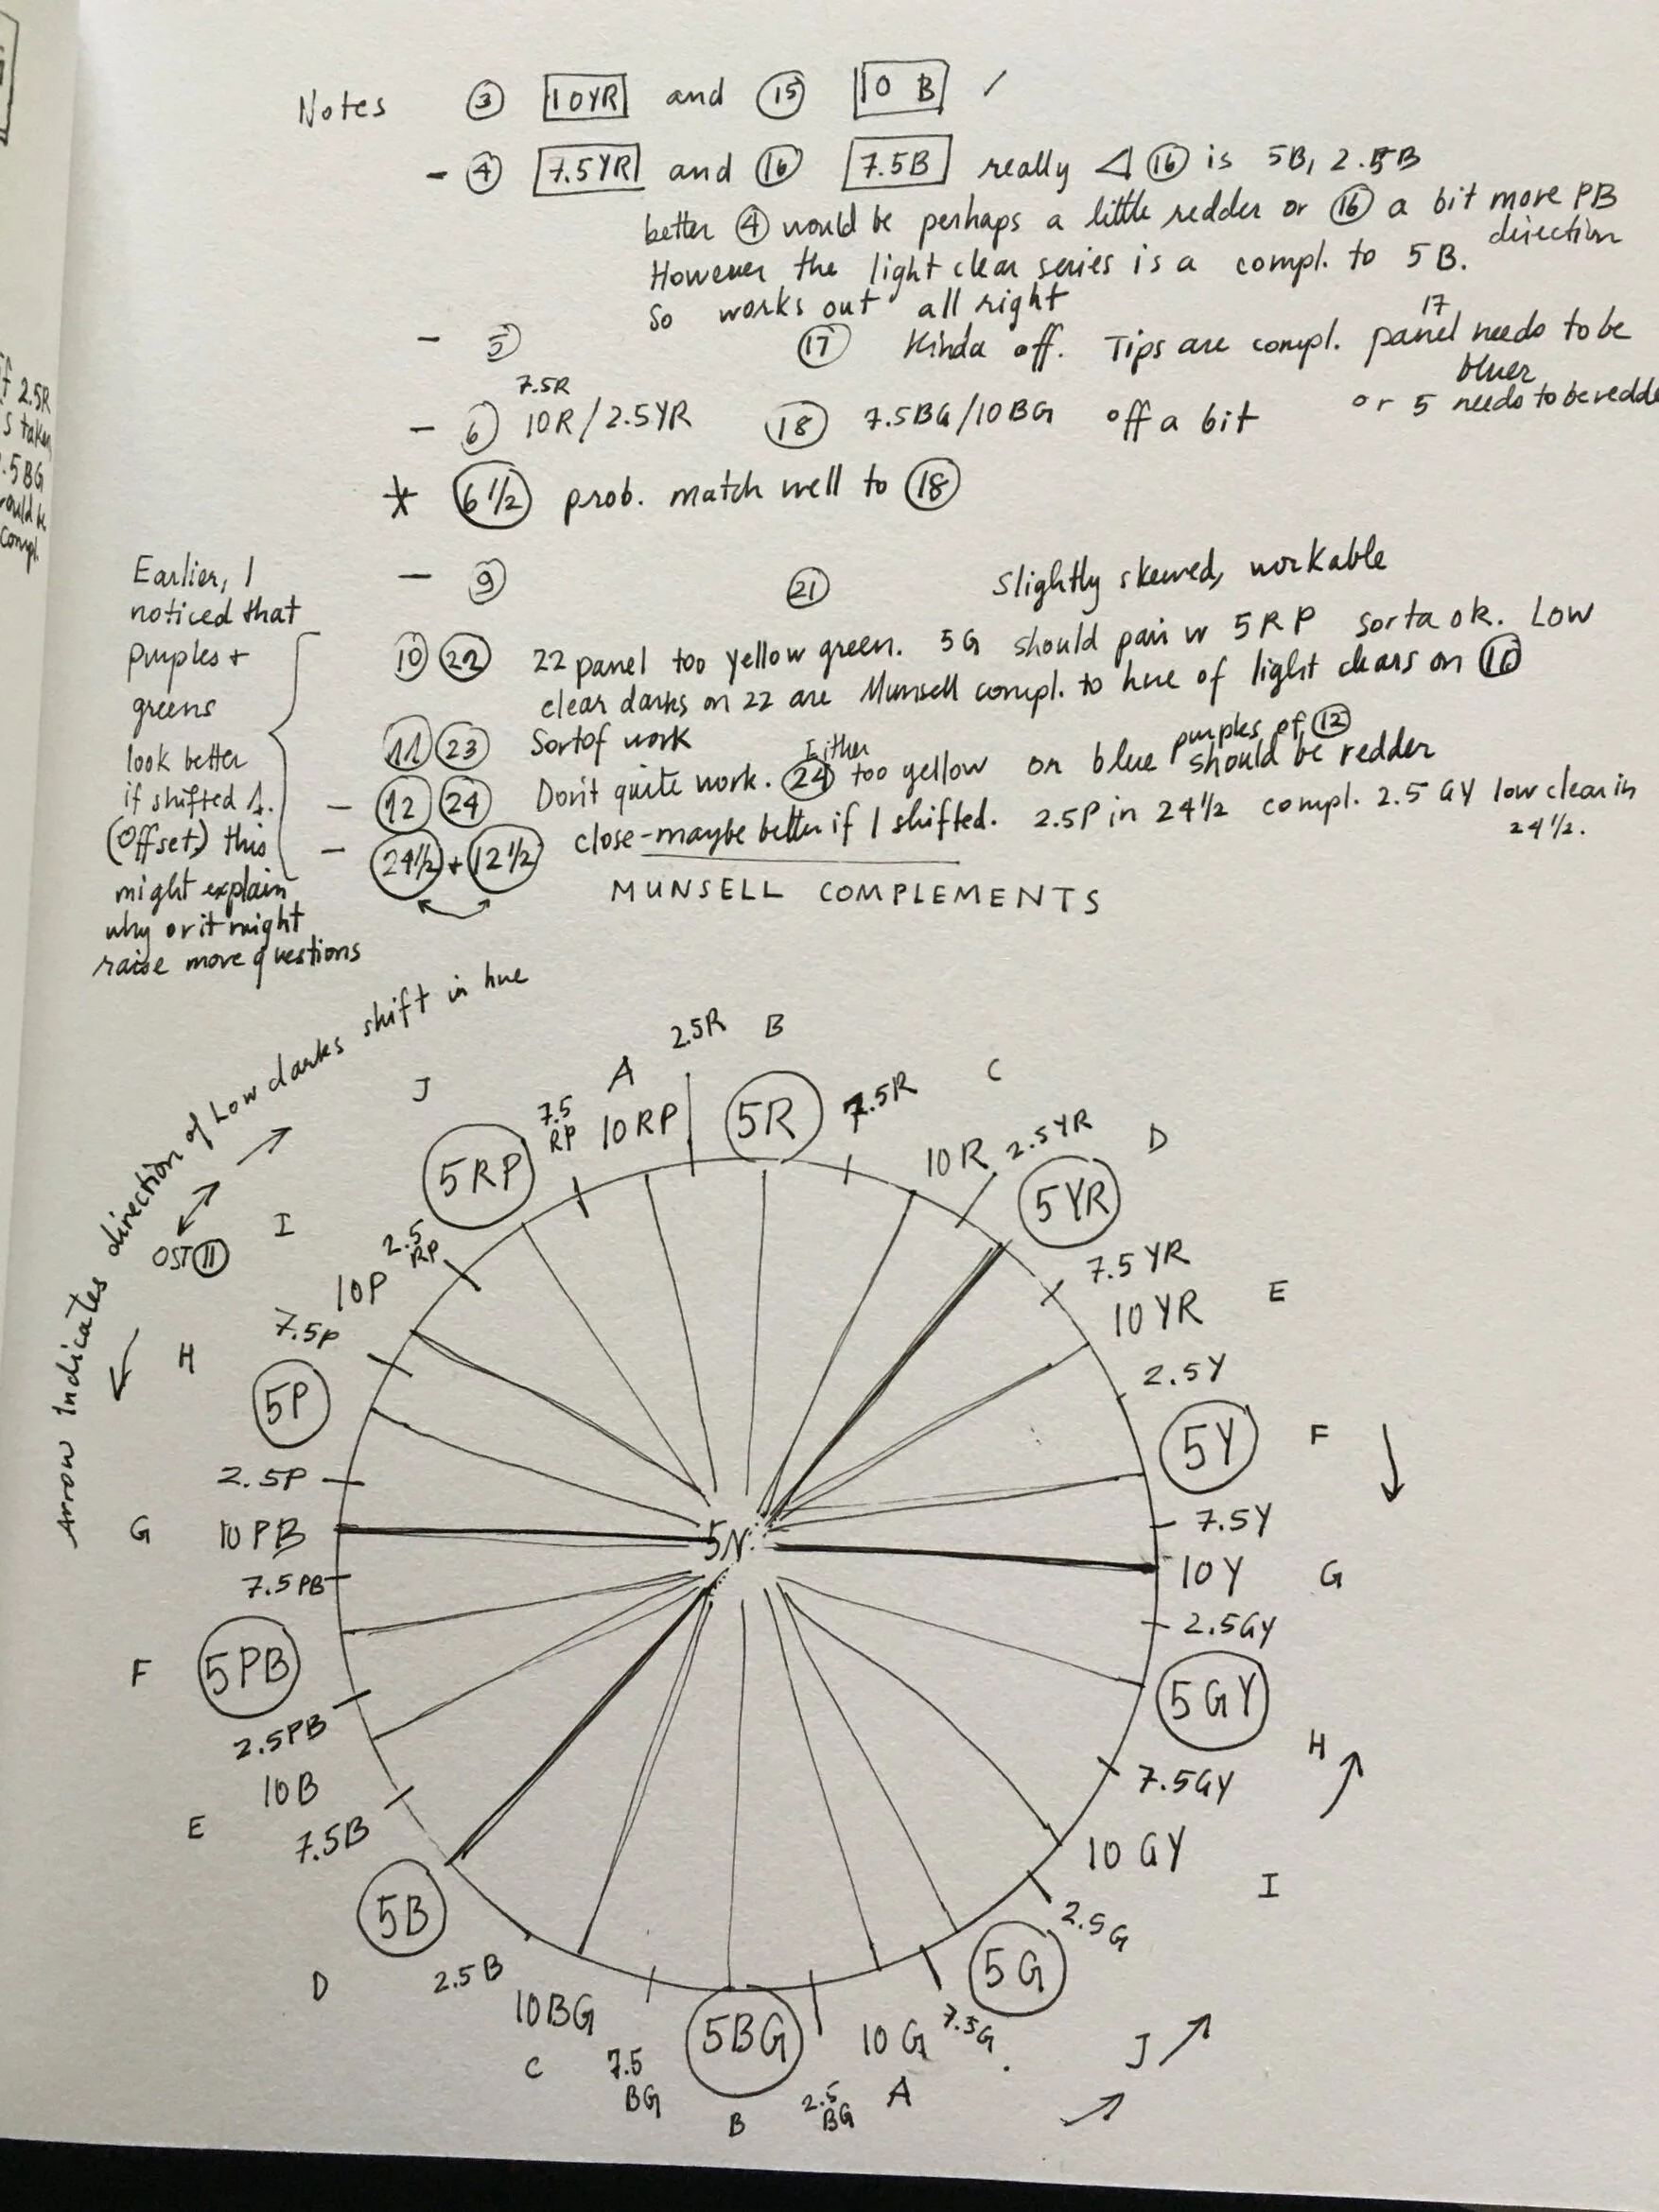 Notes ③ 10YR and ⑮ 10 B ✓
- ④ 7.5YR and ⑯ 7.5B really ⑯ is 5B, 2.5B
better ④ would be perhaps a little redder or ⑯ a bit more PB
direction
However the light clear series is a compl. to 5B.
So works out all right
- ⑤ ⑰ Kinda off. Tips are compl. 17 panel needs to be
bluer
or 5 needs to be redde
7.5R
- ⑥ 10R/2.5YR ⑱ 7.5BG/10BG off a bit
* 6 1/2 prob. match well to ⑱
- ⑨ ㉑ Slightly skewed, workable
⑩ ㉒ 22 panel too yellow green. 5G should pair w 5RP sorta ok. Low
clear darks on 22 are Munsell compl. to hue of light clears on ⑩
⑪ ㉓ Sort of work
- ⑫ ㉔ Don't quite work. Either ㉔ too yellow or blue purples of ⑫ should be redder
- 24 1/2 + 12 1/2 close - maybe better if 1 shifted. 2.5P in 24 1/2 compl. 2.5 GY low clear in
24 1/2.
Earlier, I
noticed that
purples +
greens
look better
if shifted 1.
(Offset) this
might explain
why or it might
raise more questions
if 2.5R
s taken
.5BG
would be
compl.
MUNSELL COMPLEMENTS
Arrow Indicates direction of Low darks shift in hue
OST ⑪
J
A
2.5R
B
C
5RP
7.5 RP
10RP
5R
7.5R
10R
2.5YR
D
5YR
7.5YR
10YR
E
2.5Y
5Y
F
7.5Y
10Y
G
2.5GY
5GY
H
7.5GY
10 GY
I
2.5G
5G
7.5G
J
10G
A
2.5 BG
5BG
B
7.5 BG
C
10BG
2.5B
D
5B
7.5B
E
10B
2.5PB
5PB
F
7.5PB
10PB
G
2.5P
5P
H
7.5P
10P
I
2.5 RP
5N